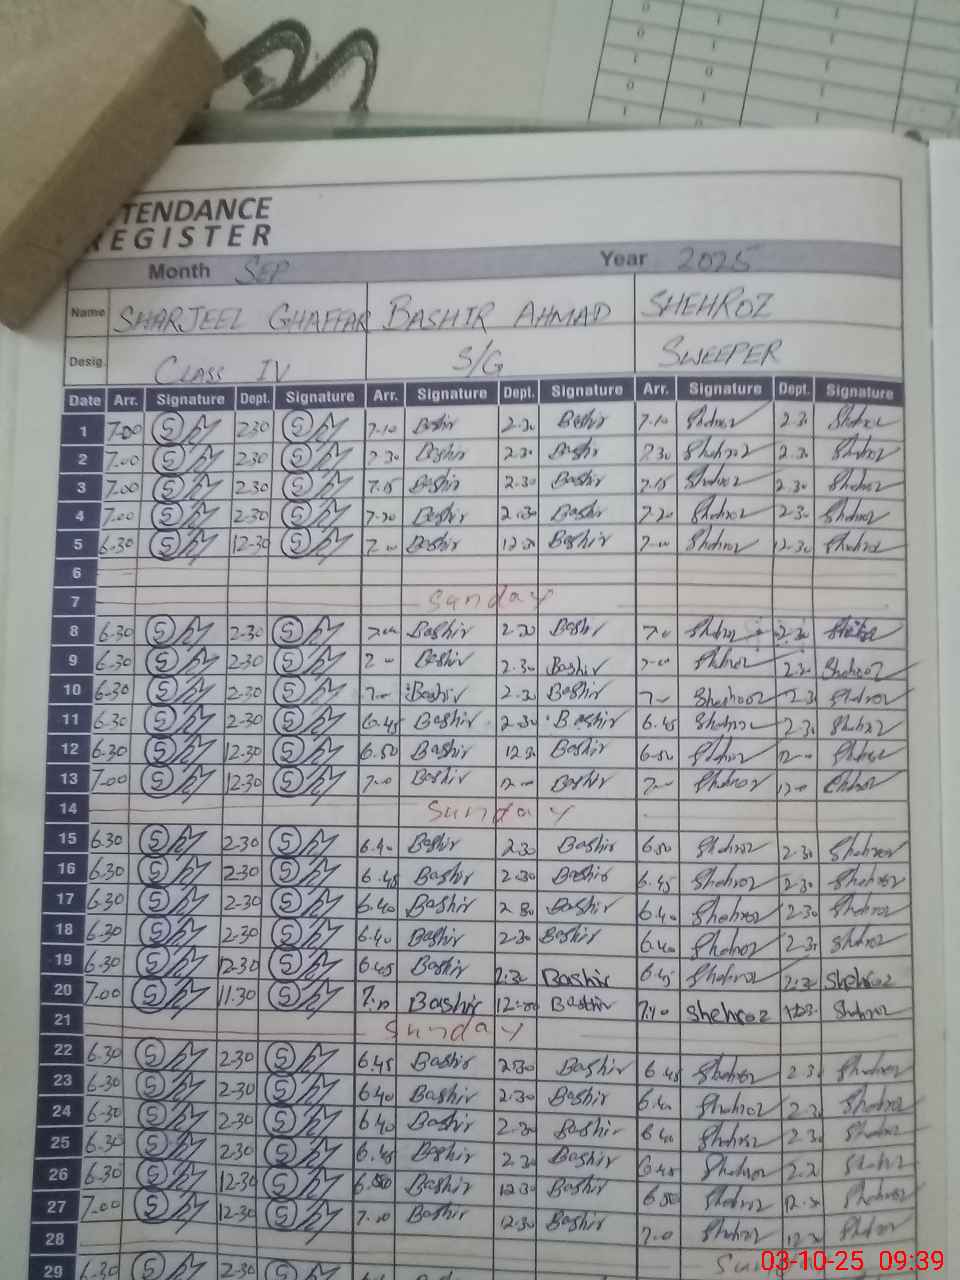 TENDANCE
REGISTER
Month SEP Year 2025
Name SHARJEEL GHAFFAR BASHIR AHMAD SHEHROZ
Desig. CLASS IV S/G SWEEPER
Date Arr. Signature Dept. Signature Arr. Signature Dept. Signature Arr. Signature Dept. Signature
1 7.00 S 2.30 S 7.10 Bashir 2.30 Bashir 7.10 Shehroz 2.30 Shehroz
2 7.00 S 2.30 S 7.30 Bashir 2.30 Bashir 7.30 Shehroz 2.30 Shehroz
3 7.00 S 2.30 S 7.15 Bashir 2.30 Bashir 7.15 Shehroz 2.30 Shehroz
4 7.00 S 2.30 S 7.20 Bashir 2.30 Bashir 7.20 Shehroz 2.30 Shehroz
5 6.30 S 12.30 S 7.00 Bashir 12.30 Bashir 7.00 Shehroz 12.30 Shehroz
6
7 Sunday
8 6.30 S 2.30 S 7.00 Bashir 2.30 Bashir 7.0 Shehroz 2.30
9 6.30 S 2.30 S 7.00 Bashir 2.30 Bashir 7.00 Shehroz 2.30 Shehroz
10 6.30 S 2.30 S 7.00 Bashir 2.30 Bashir 7.00 Shehroz 2.30 Shehroz
11 6.30 S 2.30 S 6.45 Bashir 2.30 Bashir 6.45 Shehroz 2.30 Shehroz
12 6.30 S 12.30 S 6.50 Bashir 12.30 Bashir 6.50 Shehroz 12.00 Shehroz
13 7.00 S 12.30 S 7.00 Bashir 12.00 Bashir 7.00 Shehroz 12.00 Shehroz
14 Sunday
15 6.30 S 2.30 S 6.40 Bashir 2.30 Bashir 6.50 Shehroz 2.30 Shehroz
16 6.30 S 2.30 S 6.45 Bashir 2.30 Bashir 6.45 Shehroz 2.30 Shehroz
17 6.30 S 2.30 S 6.40 Bashir 2.30 Bashir 6.40 Shehroz 2.30 Shehroz
18 6.30 S 2.30 S 6.40 Bashir 2.30 Bashir 6.40 Shehroz 2.30 Shehroz
19 6.30 S 12.30 S 6.45 Bashir 2.30 Bashir 6.45 Shehroz 2.30 Shehroz
20 7.00 S 11.30 S 7.10 Bashir 12.00 Bashir 7.10 Shehroz Shehroz
21 Sunday
22 6.30 S 2.30 S 6.45 Bashir 2.30 Bashir 6.45 Shehroz 2.30 Shehroz
23 6.30 S 2.30 S 6.40 Bashir 2.30 Bashir 6.40 Shehroz 2.30 Shehroz
24 6.30 S 2.30 S 6.40 Bashir 2.30 Bashir 6.40 Shehroz 2.30 Shehroz
25 6.30 S 2.30 S 6.45 Bashir 2.30 Bashir 6.45 Shehroz 2.30 Shehroz
26 6.30 S 12.30 S 6.50 Bashir 12.30 Bashir 6.50 Shehroz 12.30 Shehroz
27 7.00 S 12.30 S 7.10 Bashir 12.30 Bashir 7.0 Shehroz 12.30 Shehroz
28
29 6.30 S 2.30 S
03-10-25 09:39